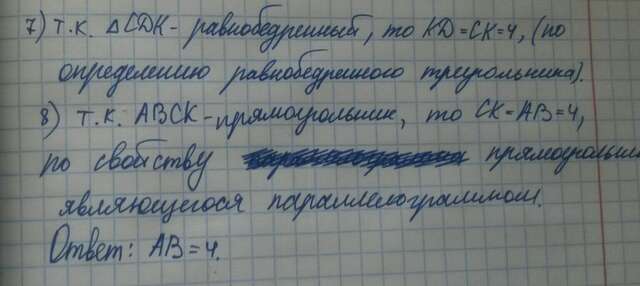 7) т.к. △CDK - равнобедренный, то KD=CK=4, (по
определению равнобедренного треугольника).
8) т.к. ABCK-прямоугольник, то CK=AB=4,
по свойству прямоугольни
являющегося параллелограммом.
Ответ: AB=4.